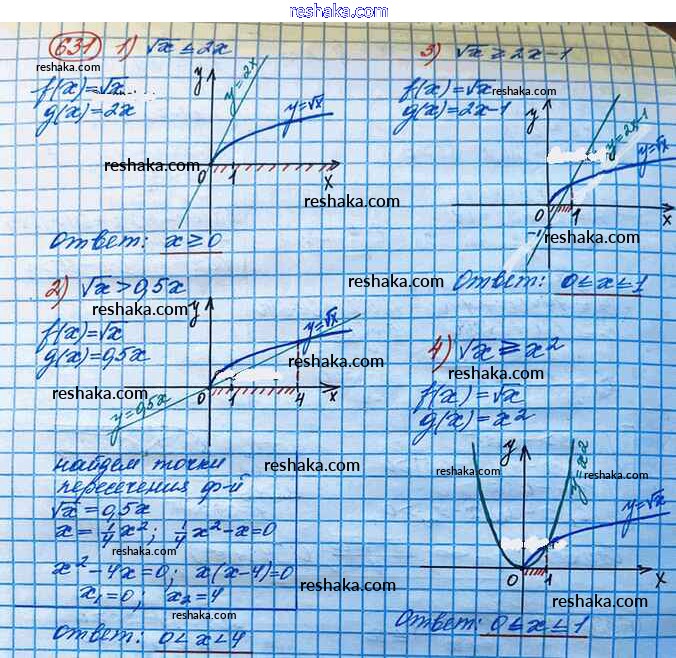 reshaka.com
631 1) √x ≤ 2x
reshaka.com
f(x)=√x
g(x)=2x
y
y=2x
y=√x
reshaka.com
reshaka.com
0 1 x
Ответ: x≥0
3) √x ≥ 2x-1
reshaka.com
f(x)=√x
g(x)=2x-1
y
y=2x-1
y=√x
reshaka.com
0 1 x
-1
reshaka.com
Ответ: 0≤x≤1
reshaka.com
2) √x > 0,5x
reshaka.com
f(x)=√x
g(x)=0,5x
y
y=√x
reshaka.com
reshaka.com
0 1 4 x
y=0,5x
найдем точки
пересечения ф-й
reshaka.com
√x = 0,5x
x = 1/4 x²; 1/4 x² - x = 0
reshaka.com
x² - 4x = 0; x(x-4)=0
x₁=0; x₂=4
reshaka.com
Ответ: 0<x<4
reshaka.com
4) √x ≥ x²
reshaka.com
f(x)=√x
g(x)=x²
reshaka.com
y
y=x²
reshaka.com
reshaka.com
y=√x
reshaka.com
0 1 x
reshaka.com
Ответ: 0≤x≤1
reshaka.com